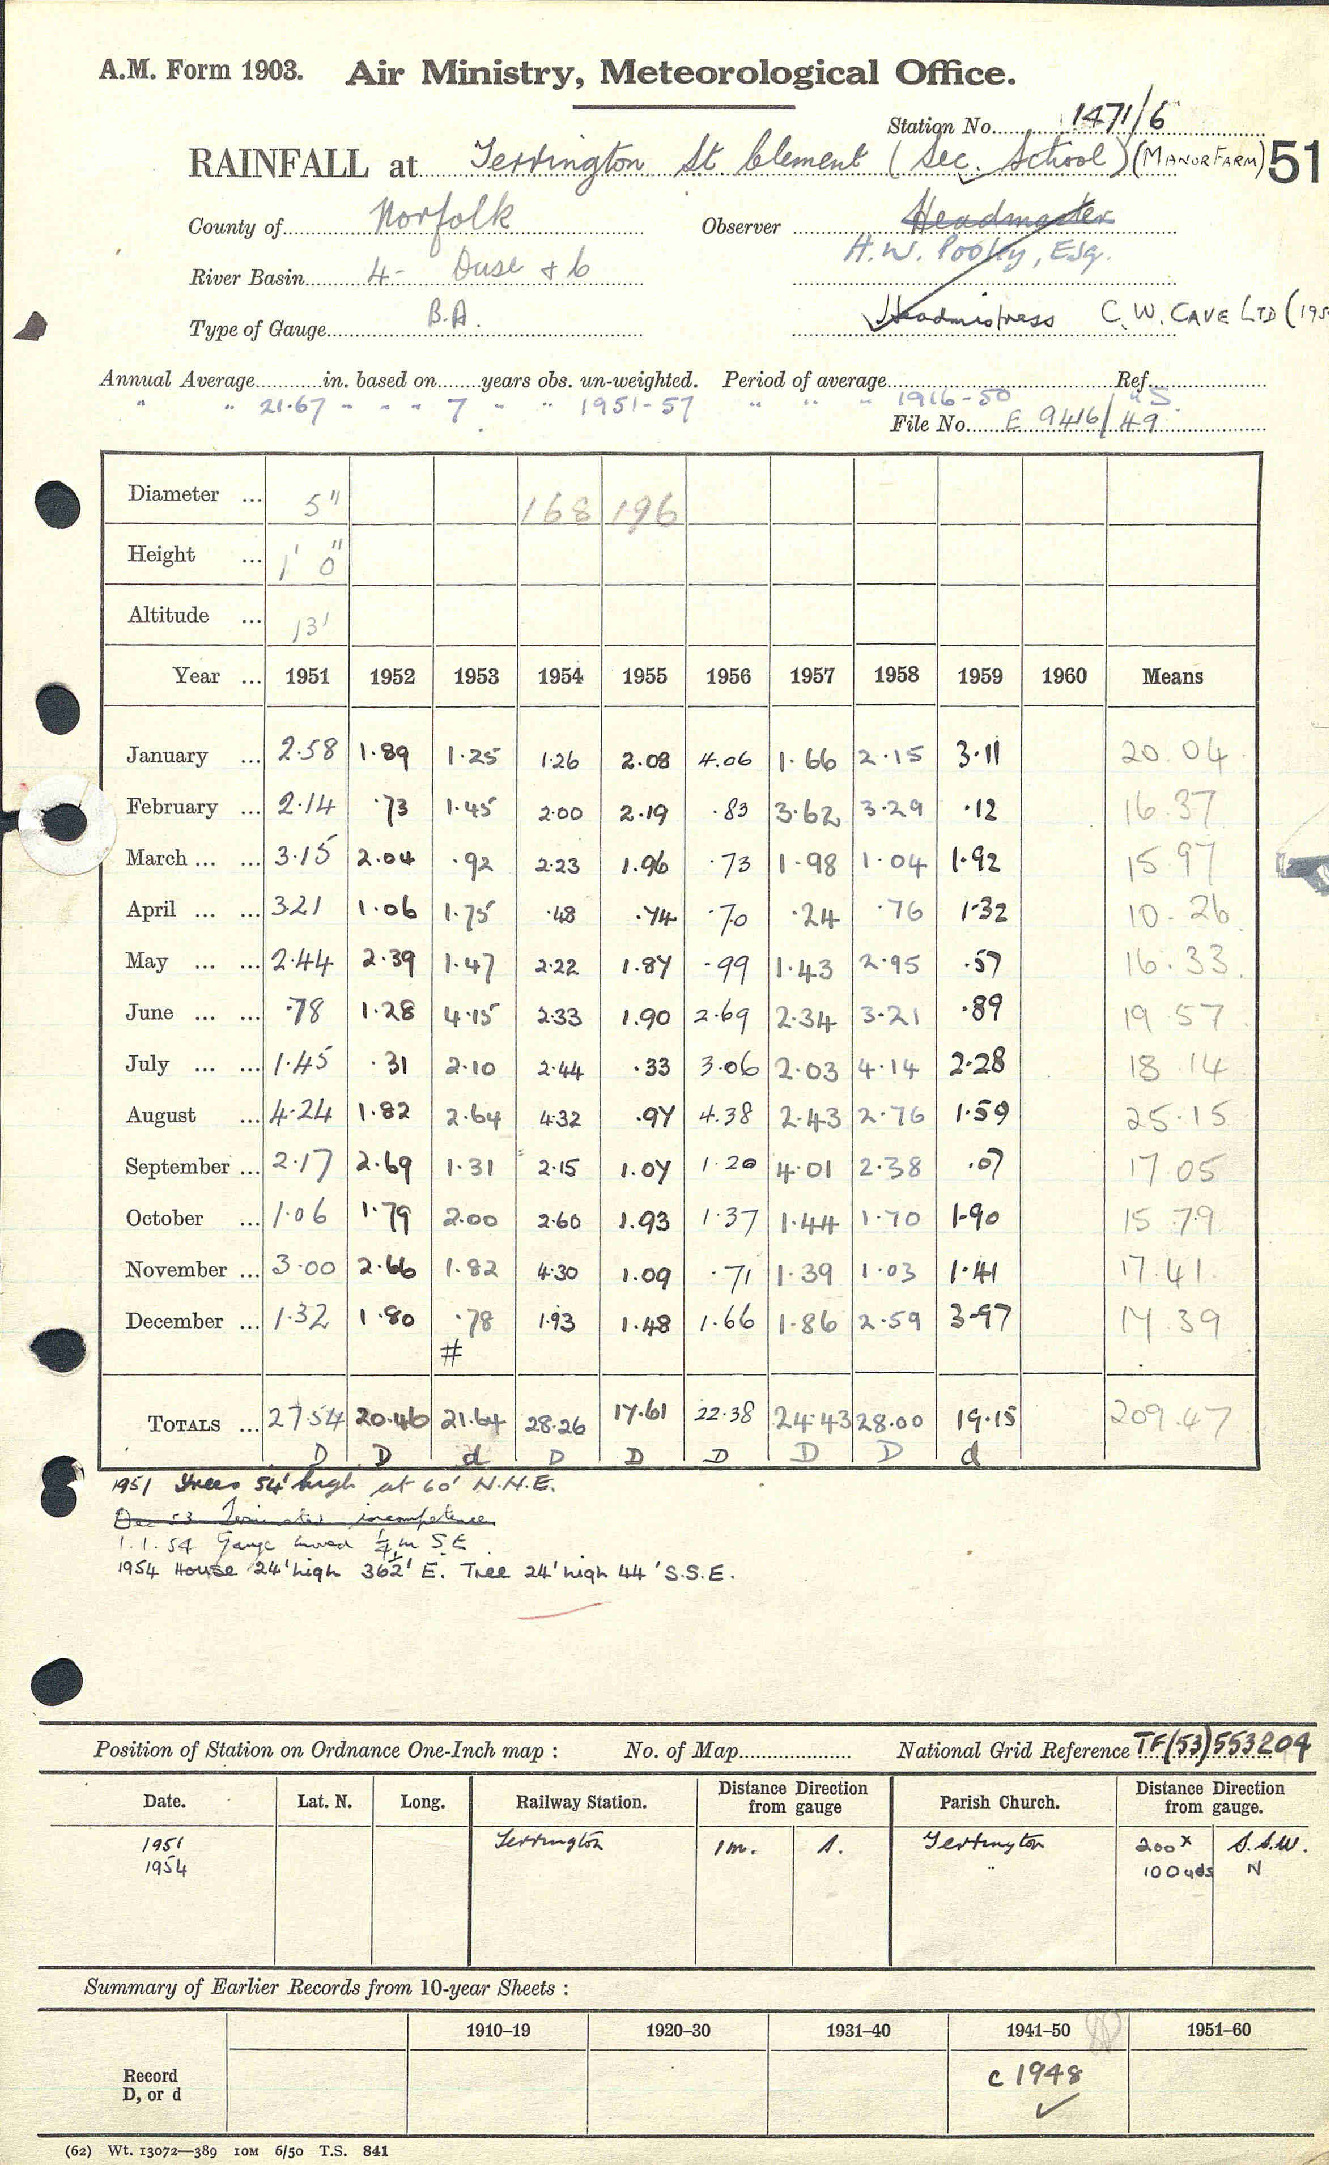 A.M. Form 1903. Air Ministry, Meteorological Office.
Station No. 1471/6
RAINFALL at Terrington St. Clement (Sec. School) (MANOR FARM) 51
County of Norfolk Observer Headmaster
H.W. Pooley, Esq.
River Basin 4- Ouse + b
Type of Gauge B.A. Headmistress C.W. CAVE LTD (195
Annual Average in. based on years obs. un-weighted. Period of average Ref.
" " 21.67 " " " 7 " " 1951-57 " " " 1916-50 "S.
File No. E 9416/49
Diameter ... 5" 168 196
Height ... 1' 0"
Altitude ... 13'
Year ... 1951 1952 1953 1954 1955 1956 1957 1958 1959 1960 Means
January ... 2.58 1.89 1.25 1.26 2.08 4.06 1.66 2.15 3.11 20.04
February ... 2.14 .73 1.45 2.00 2.19 .83 3.62 3.29 .12 16.37
March ... ... 3.15 2.04 .92 2.23 1.96 .73 1.98 1.04 1.92 15.97
April ... ... 3.21 1.06 1.75 .48 .74 .70 .24 .76 1.32 10.26
May ... ... 2.44 2.39 1.47 2.22 1.87 .99 1.43 2.95 .57 16.33
June ... ... .78 1.28 4.15 2.33 1.90 2.69 2.34 3.21 .89 19.57
July ... ... 1.45 .31 2.10 2.44 .33 3.06 2.03 4.14 2.28 18.14
August ... 4.24 1.82 2.64 4.32 .97 4.38 2.43 2.76 1.59 25.15
September ... 2.17 2.69 1.31 2.15 1.07 1.20 4.01 2.38 .07 17.05
October ... 1.06 1.79 2.00 2.60 1.93 1.37 1.44 1.70 1.90 15.79
November ... 3.00 2.66 1.82 4.30 1.09 .71 1.39 1.03 1.41 17.41
December ... 1.32 1.80 .78 1.93 1.48 1.66 1.86 2.59 3.97 17.39
#
TOTALS ... 27.54 20.46 21.64 28.26 17.61 22.38 24.43 28.00 19.15 209.47
D D d D D D D D d
1951 Trees 54' high at 60' N.N.E.
Dec 53 Terminated incompetence
1.1.54 Gauge moved ¼ m S.E.
1954 House 24' high 36½' E. Tree 24' high 44' S.S.E.
Position of Station on Ordnance One-Inch map : No. of Map National Grid Reference TF(53)553204
Date. Lat. N. Long. Railway Station. Distance from gauge Direction Parish Church. Distance from gauge. Direction
1951 Terrington 1m. S. Terrington 200x S.S.W.
1954 " 100 yds N
Summary of Earlier Records from 10-year Sheets :
1910–19 1920–30 1931–40 1941–50 1951–60
Record
D, or d
c 1948
(62) Wt. 13072—389 10M 6/50 T.S. 841